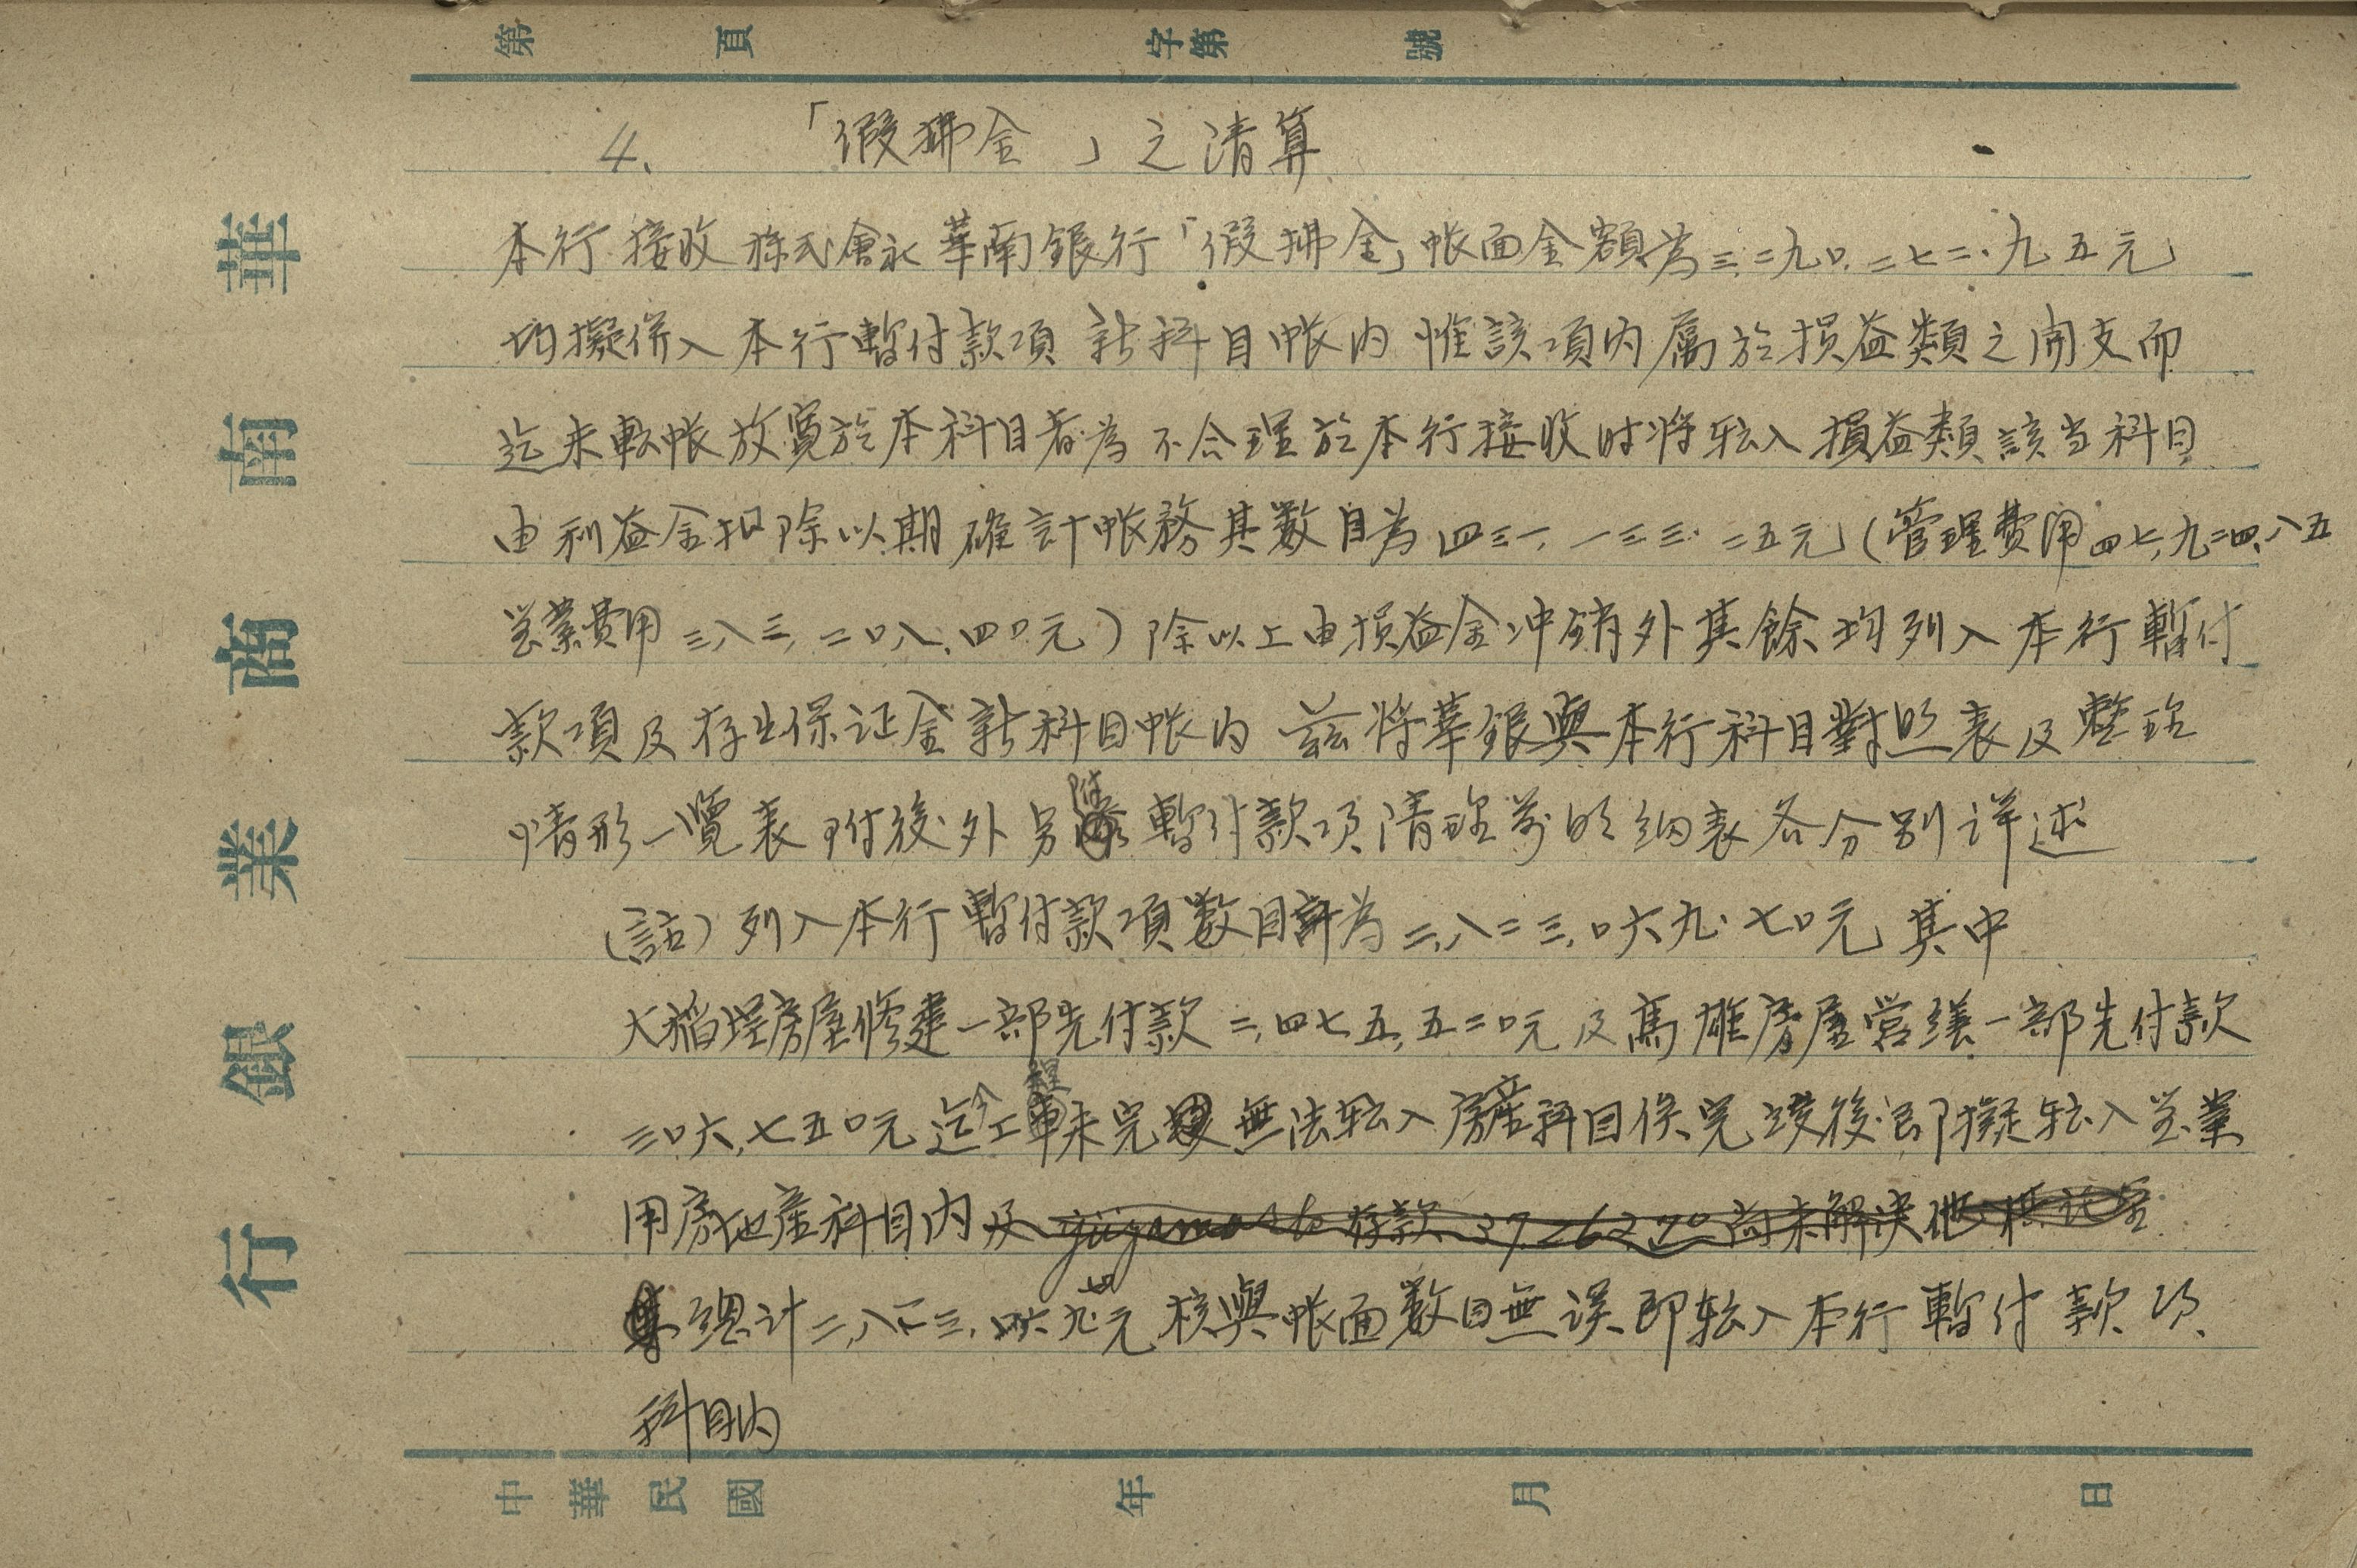 第 頁 字第 號
4、「假拂金」之清算
本行接收株式會社華南銀行「假拂金」帳面金額為三、二九〇、二七二.九五元
均擬併入本行暫付款項新科目帳內惟該項內屬於損益類之開支而
迄未転帳放寘於本科目者為不合理於本行接收时将転入損益類該当科目
由利益金扣除以期確計帳務其數目為四三一、一三三.二五元(管理費用四七、九二四、八五
営業費用三八三、二〇八、四〇元)除以上由損益金冲銷外其餘均列入本行暫付
款項及存出保証金新科目帳內茲将華銀與本行科目對照表及整理
情形一覽表附後外另附暫付款項清理前明細表各分別详述
(註)列入本行暫付款項數目計為二、八二三、〇六九.七〇元其中
大稲埕房屋修建一部先付款二、四七五、五二〇元及高雄房屋営繕一部先付款
三〇六、七五〇元迄今工程未完竣無法転入房産科目俟完竣後即擬転入営業
用房地産科目內及 存款37,262.70尚未解決
總计二、八二三、〇六九.七〇元核與帳面數目無误即転入本行暫付款項
科目內
華南商業銀行
中華民國 年 月 日